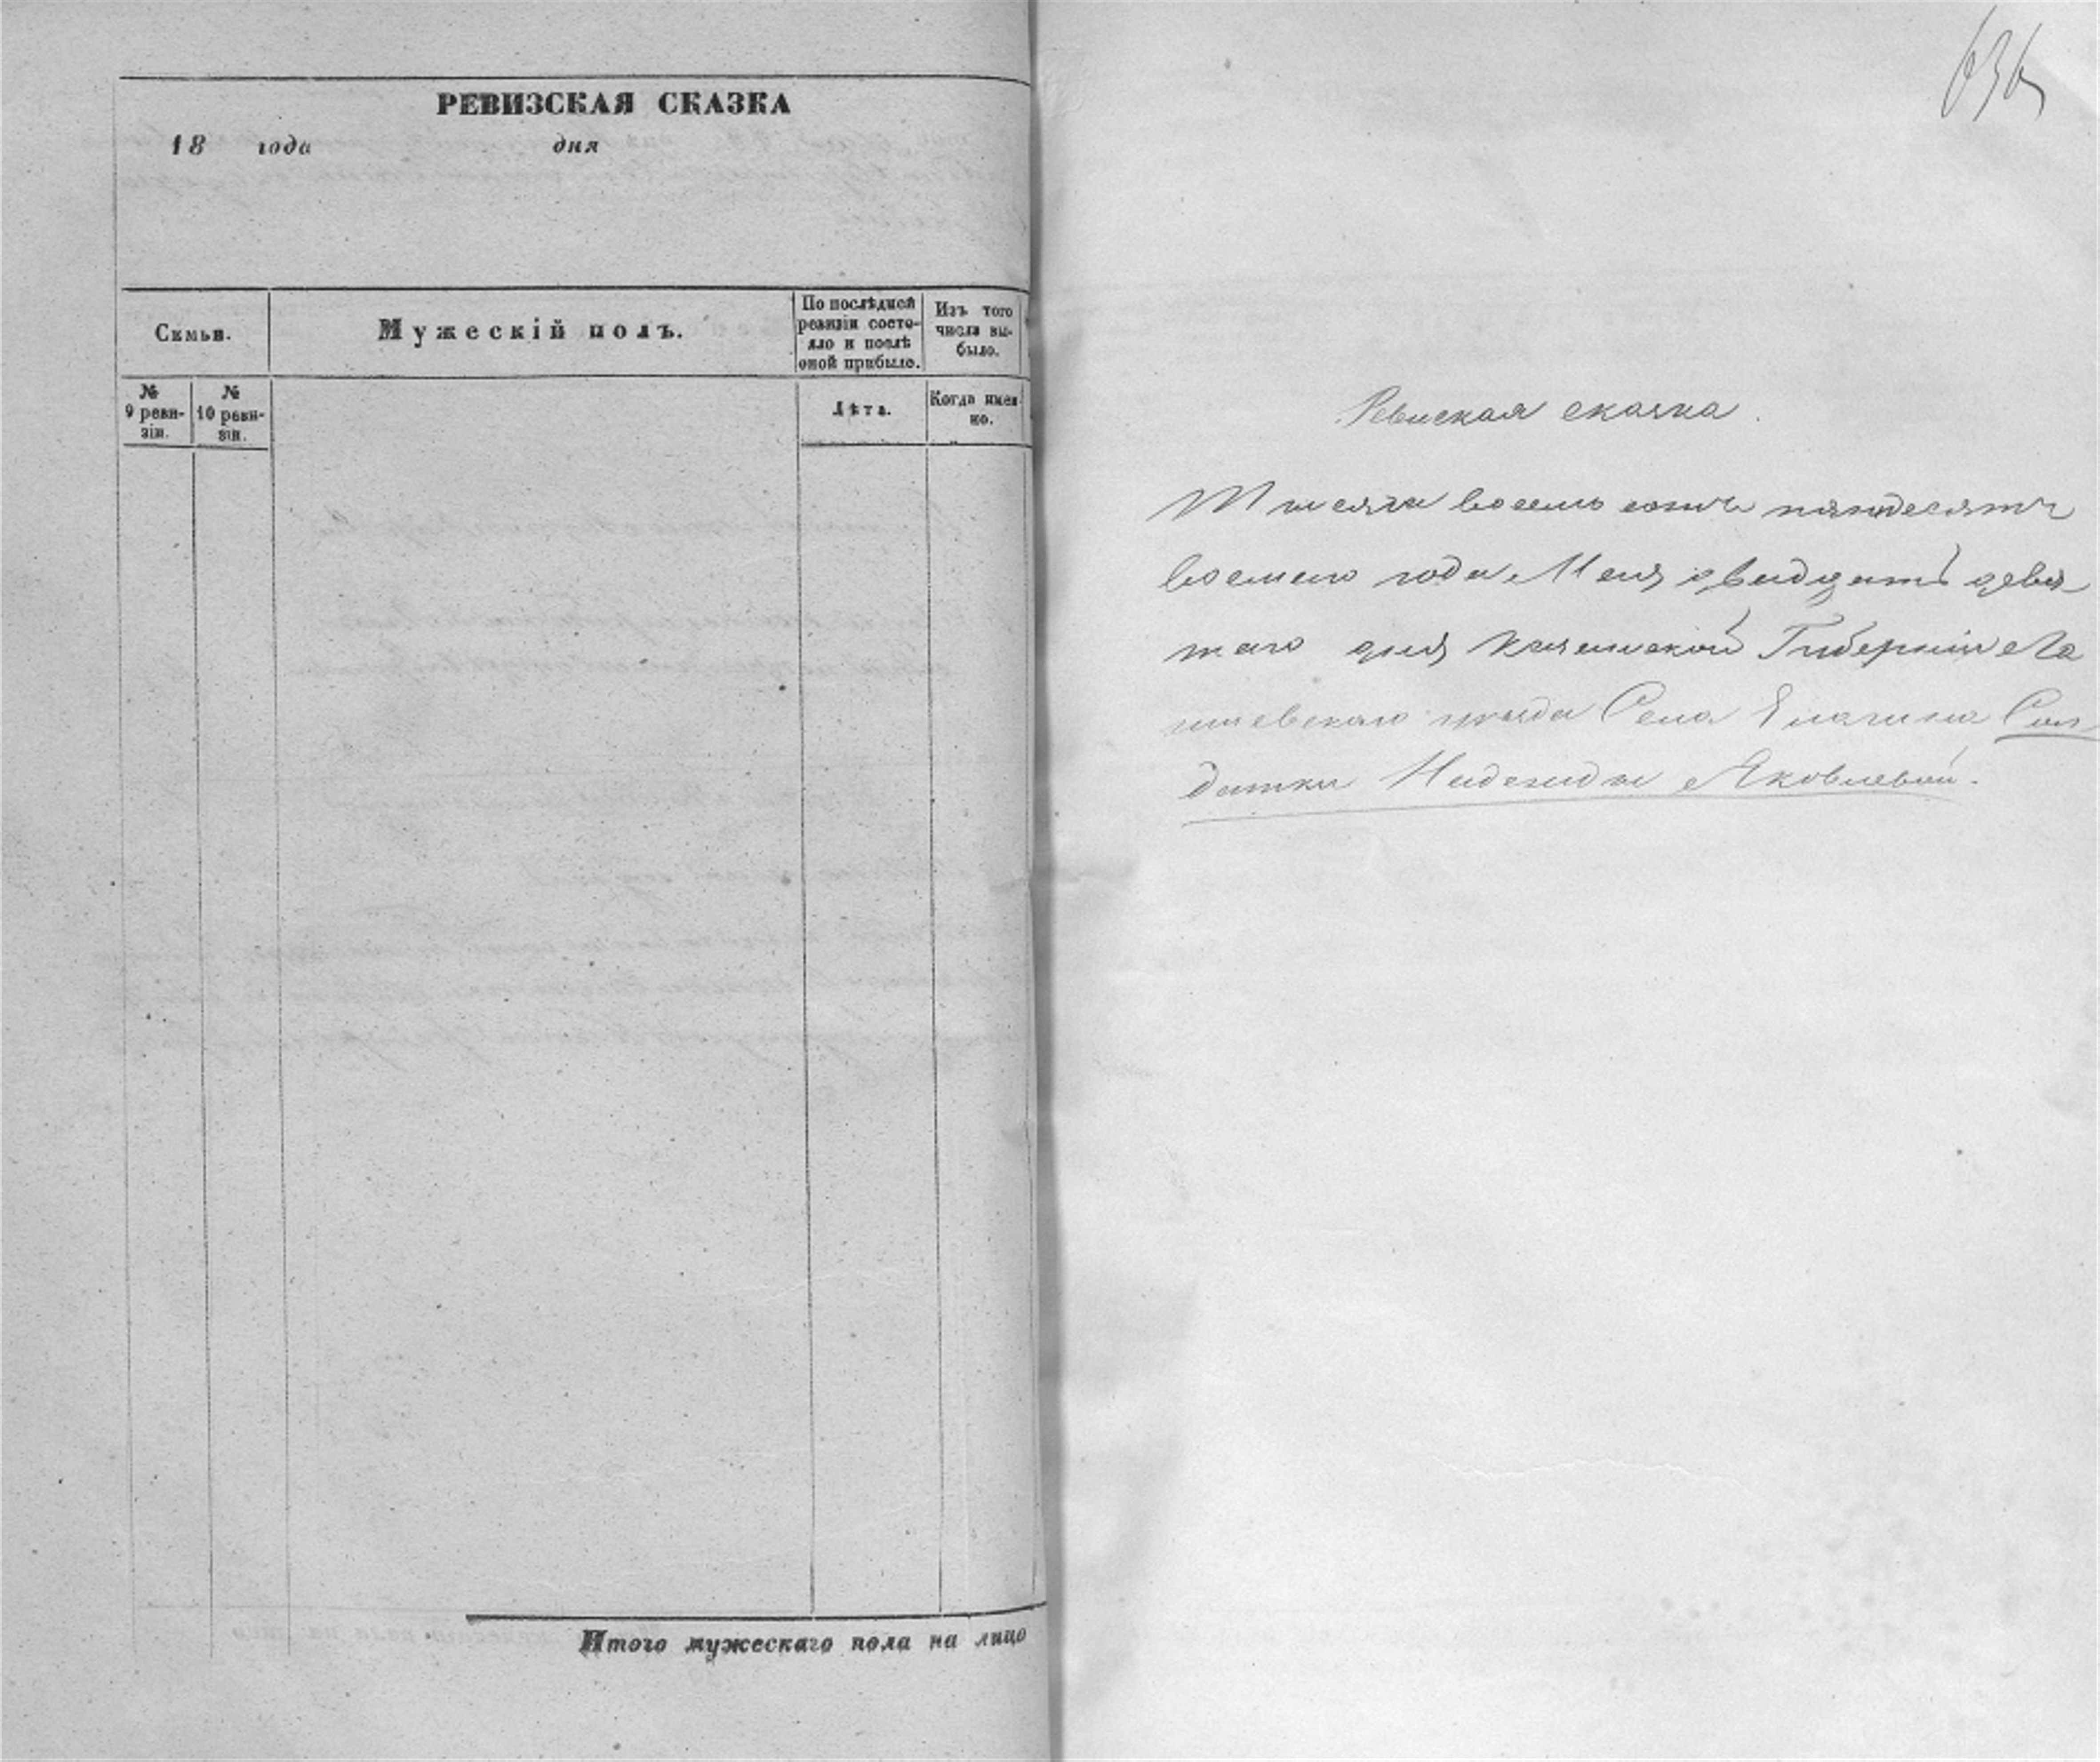 РЕВИЗСКАЯ СКАЗКА
18 года дня
Семьи.
Мужескій полъ.
По послѣдней
ревизіи состо-
яло и послѣ
оной прибыло.
Изъ того
числа вы-
было.
№
9 реви-
зіи.
№
10 реви-
зіи.
Лѣта.
Когда имен-
но.
Итого мужескаго пола на лицо
636
Ревиская сказка.
Тысяча восемь сотъ пятдесятъ
восмаго года Мая двадцать девя
таго дня Казанской Губерніи Ла
ишевскаго уѣзда Села Елагина Сол
датки Надежды Яковлевой.